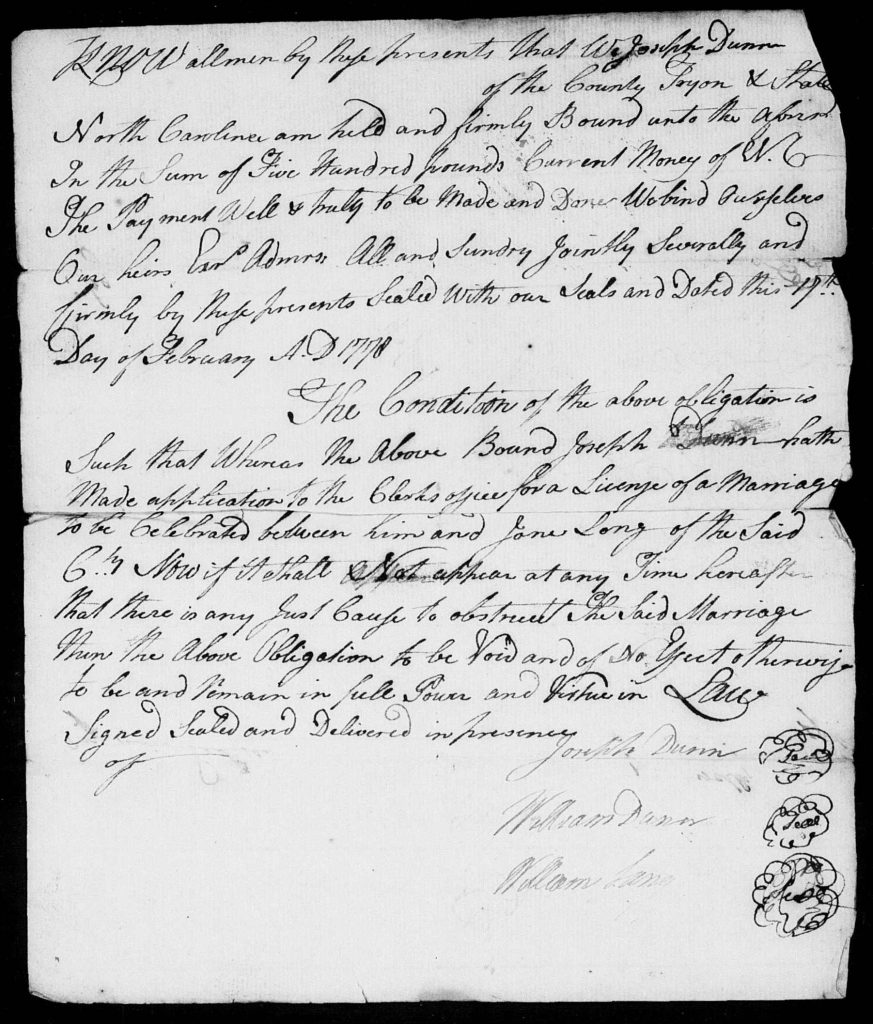 KNOW all men by these presents that We Joseph Dunn
of the County Tryon & State
North Carolina am held and firmly Bound unto the
In the Sum of Five Hundred pounds Current Money of N. C
The Payment Well & truly to be Made and Done We bind Ourselves
Our heirs Exrs Admrs: All and Sundry Jointly Severally and
firmly by these presents Sealed With our Seals and Dated this 17th
Day of February A. D 1778
The Condition of the above obligation is
Such that Whereas the Above Bound Joseph Dunn hath
Made application to the Clerks office for a License of a Marriage
to be Celebrated between him and Jane Long of the Said
Cty Now if it Shall Not appear at any Time hereafter
that there is any Just Cause to obstruct The Said Marriage
then the Above Obligation to be Void and of No Efect otherwise
to be and Remain in full Power and Virtue in Law
Signed Sealed and Delivered in presence
of
Joseph Dunn Seal
William Dunn Seal
William Seal